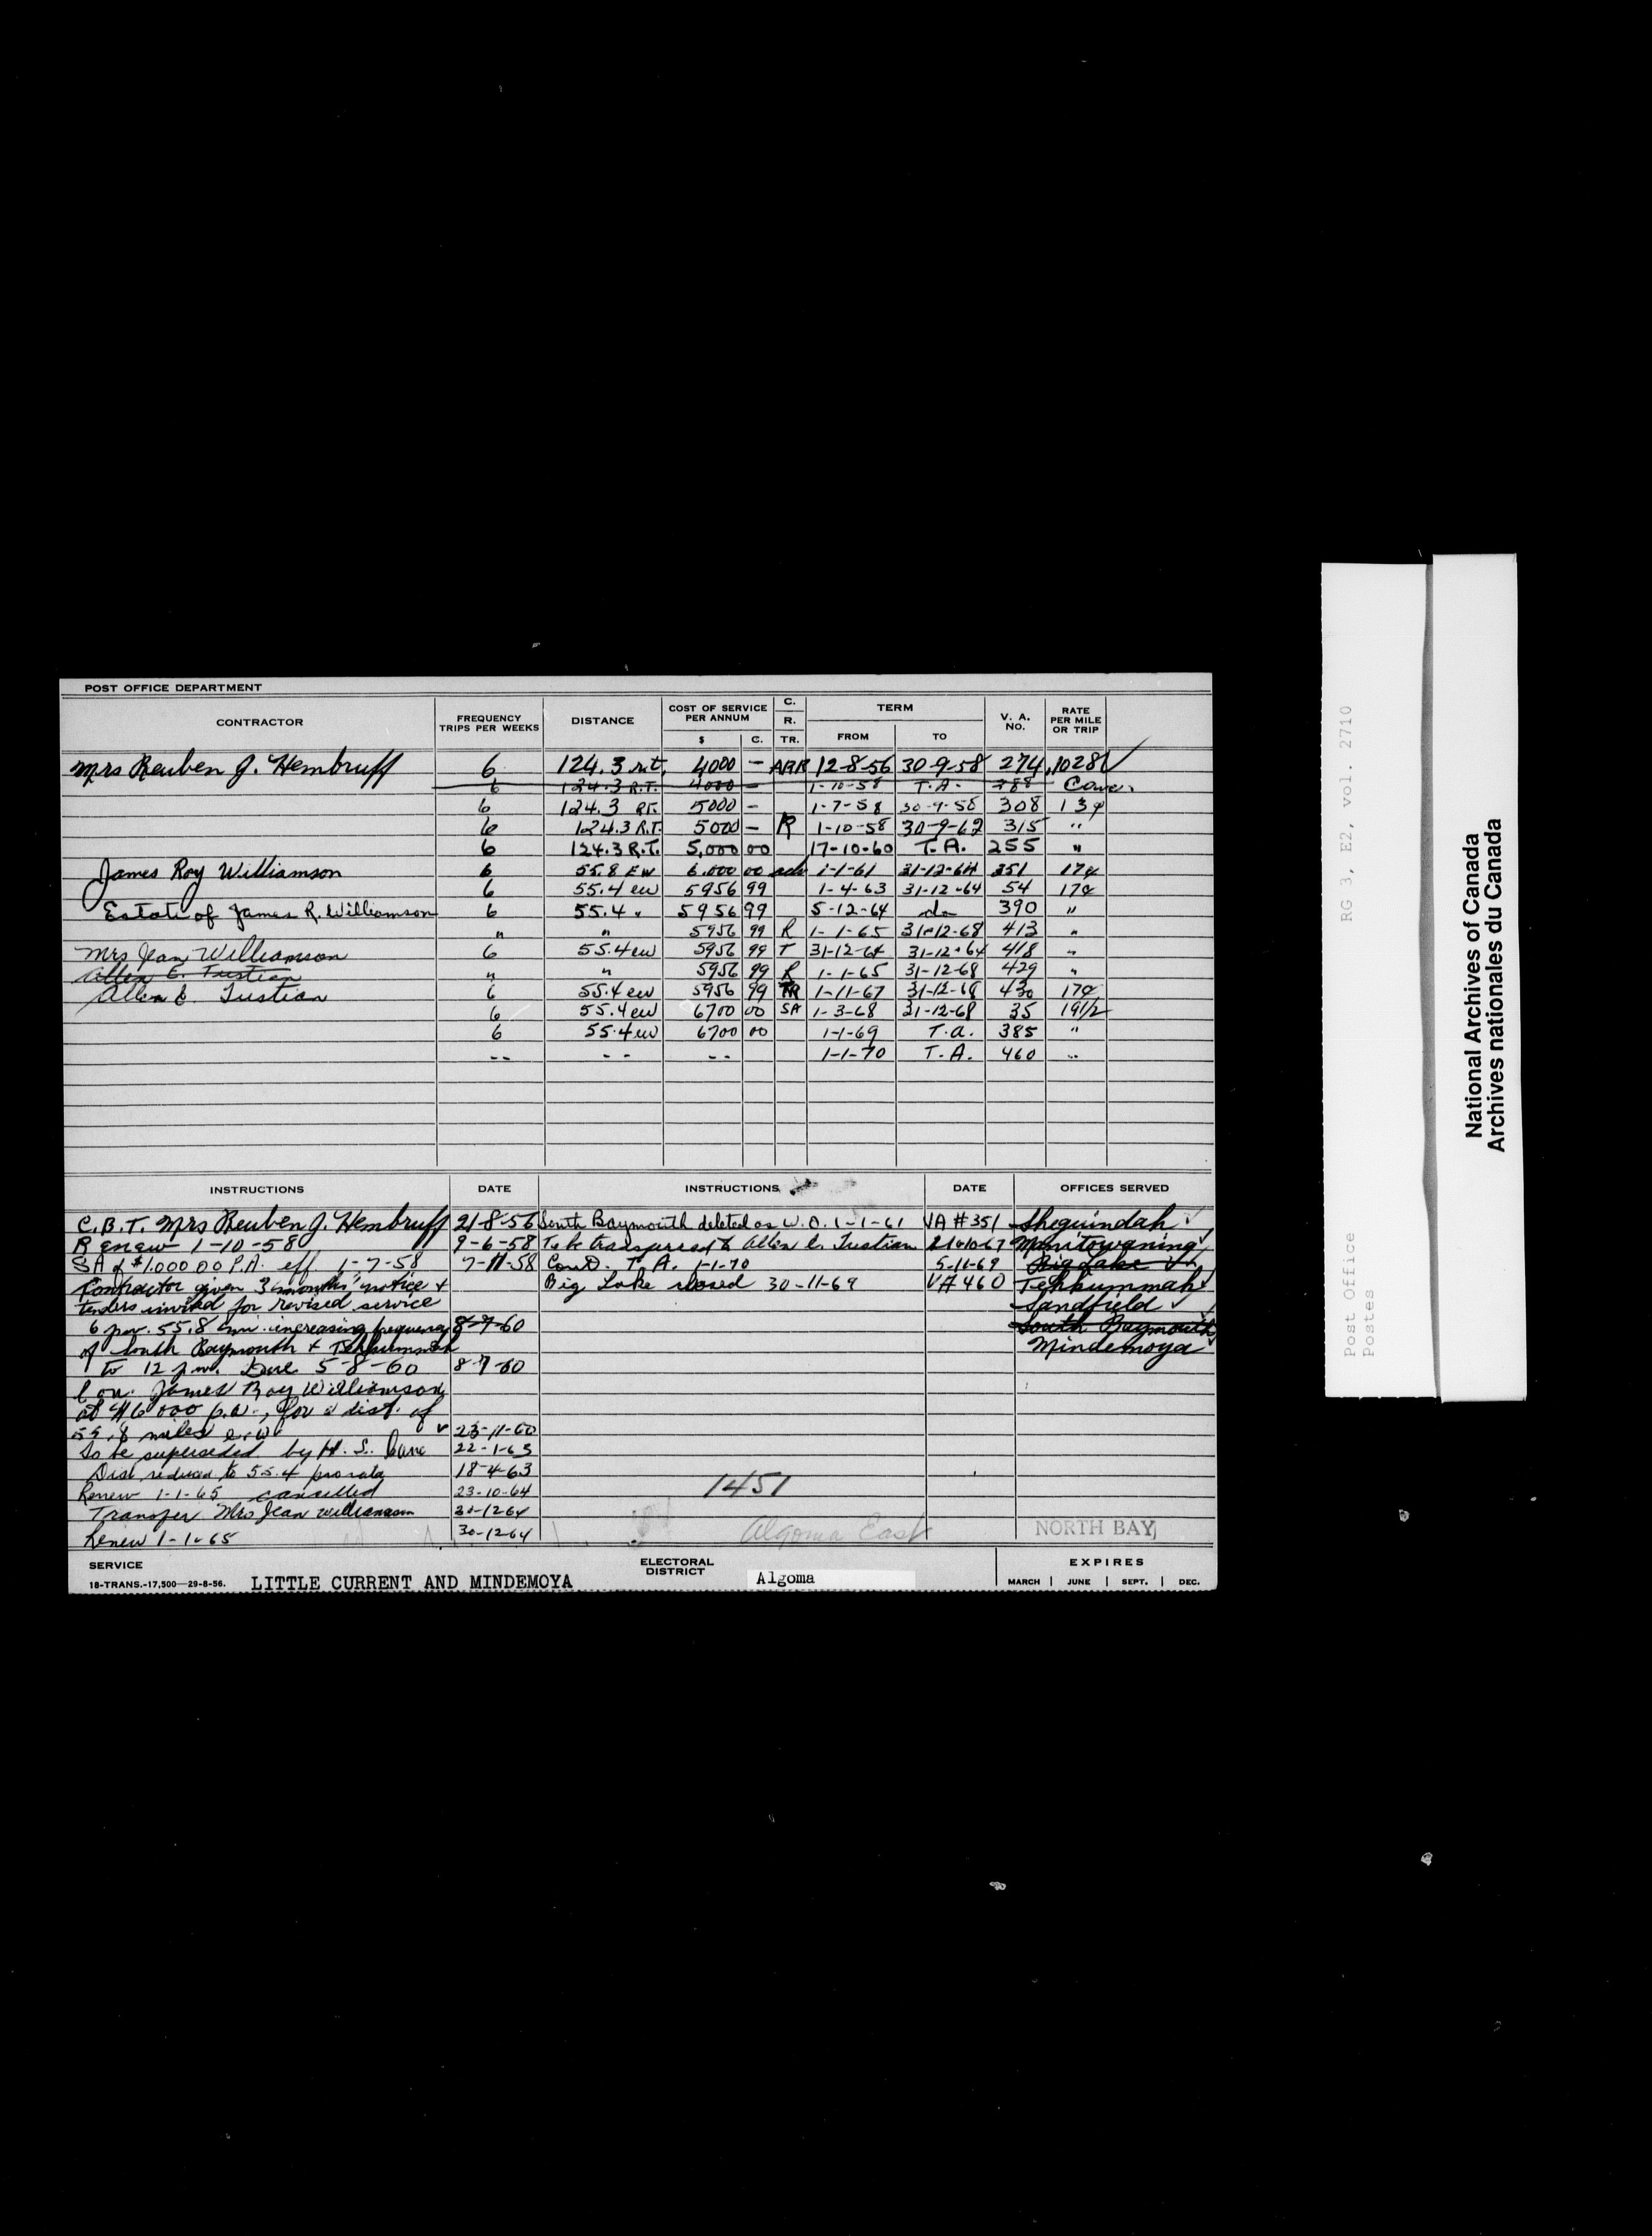 POST OFFICE DEPARTMENT
CONTRACTOR FREQUENCY TRIPS PER WEEKS DISTANCE COST OF SERVICE PER ANNUM $ C. C. R. TR. TERM FROM TO V. A. No. RATE PER MILE OR TRIP
Mrs Reuben J. Hembruff 6 124.3 r.t. 4000 – ARR 12-8-56 30-9-58 274 .10281 ✓
6 124.3 R.T. 4000 – 1-10-58 T.A. 288 Canc.
6 124.3 RT. 5000 – 1-7-58 30-9-58 308 13¢
6 124.3 R.T. 5000 – R 1-10-58 30-9-62 315 "
6 124.3 R.T. 5,000 00 17-10-60 T.A. 255 "
James Roy Williamson 6 55.8 EW 6.000 00 1-1-61 31-12-64 351 17¢
6 55.4 ew 5956 99 1-4-63 31-12-64 54 17¢
Estate of James R. Williamson 6 55.4 " 5956 99 5-12-64 do 390 "
" " 5956 99 R 1-1-65 31-12-68 413 "
Mrs Jean Williamson 6 55.4 ew 5956 99 T 31-12-64 31-12-64 418 "
Allen E. Tustian " " 5956 99 R 1-1-65 31-12-68 429 "
Allen E. Tustian 6 55.4 ew 5956 99 TR 1-11-67 31-12-68 430 17¢
6 55.4 ew 6700 00 SA 1-3-68 31-12-68 35 19 1/2
6 55.4 ew 6700 00 1-1-69 T.a. 385 "
-- -- -- 1-1-70 T.A. 460 "
INSTRUCTIONS DATE INSTRUCTIONS DATE OFFICES SERVED
C.B.T. Mrs Reuben J. Hembruff 21-8-56 South Baymouth deleted as W.O. 1-1-61 VA #351 Sheguindah ✓
Renew 1-10-58 9-6-58 To be transferred to Allen E. Tustian 21-10-67 Manitowaning ✓
SA of $1.000 00 P.A. eff 1-7-58 7-11-58 Cont'd. T.A. 1-1-70 5-11-69 Big Lake
Contractor given 3 months' notice + Big Lake closed 30-11-69 VA 460 Tehkummah ✓
tenders invited for revised service Sandfield ✓
6 p.w. 55.8 e.w. increasing frequency 8-7-60 South Baymouth
of South Baymouth + Tehkummah Mindemoya
to 12 p.w. Due 5-8-60 8-7-60
Con. James Roy Williamson
at $6000 p.a., for a dist. of
55.8 miles e.w. 23-11-60
To be superseded by H. S. 22-1-63
Dist. reduced to 55.4 pro rata 18-4-63
Renew 1-1-65 cancelled 23-10-64 1451
Transfer Mrs Jean Williamson 30-12-64
Renew 1-1-65 30-12-64 Algoma East NORTH BAY
SERVICE ELECTORAL DISTRICT EXPIRES
18-TRANS.-17,500—29-8-56. LITTLE CURRENT AND MINDEMOYA Algoma MARCH | JUNE | SEPT. | DEC.
Post Office RG 3, E2, vol. 2710
Postes
National Archives of Canada
Archives nationales du Canada